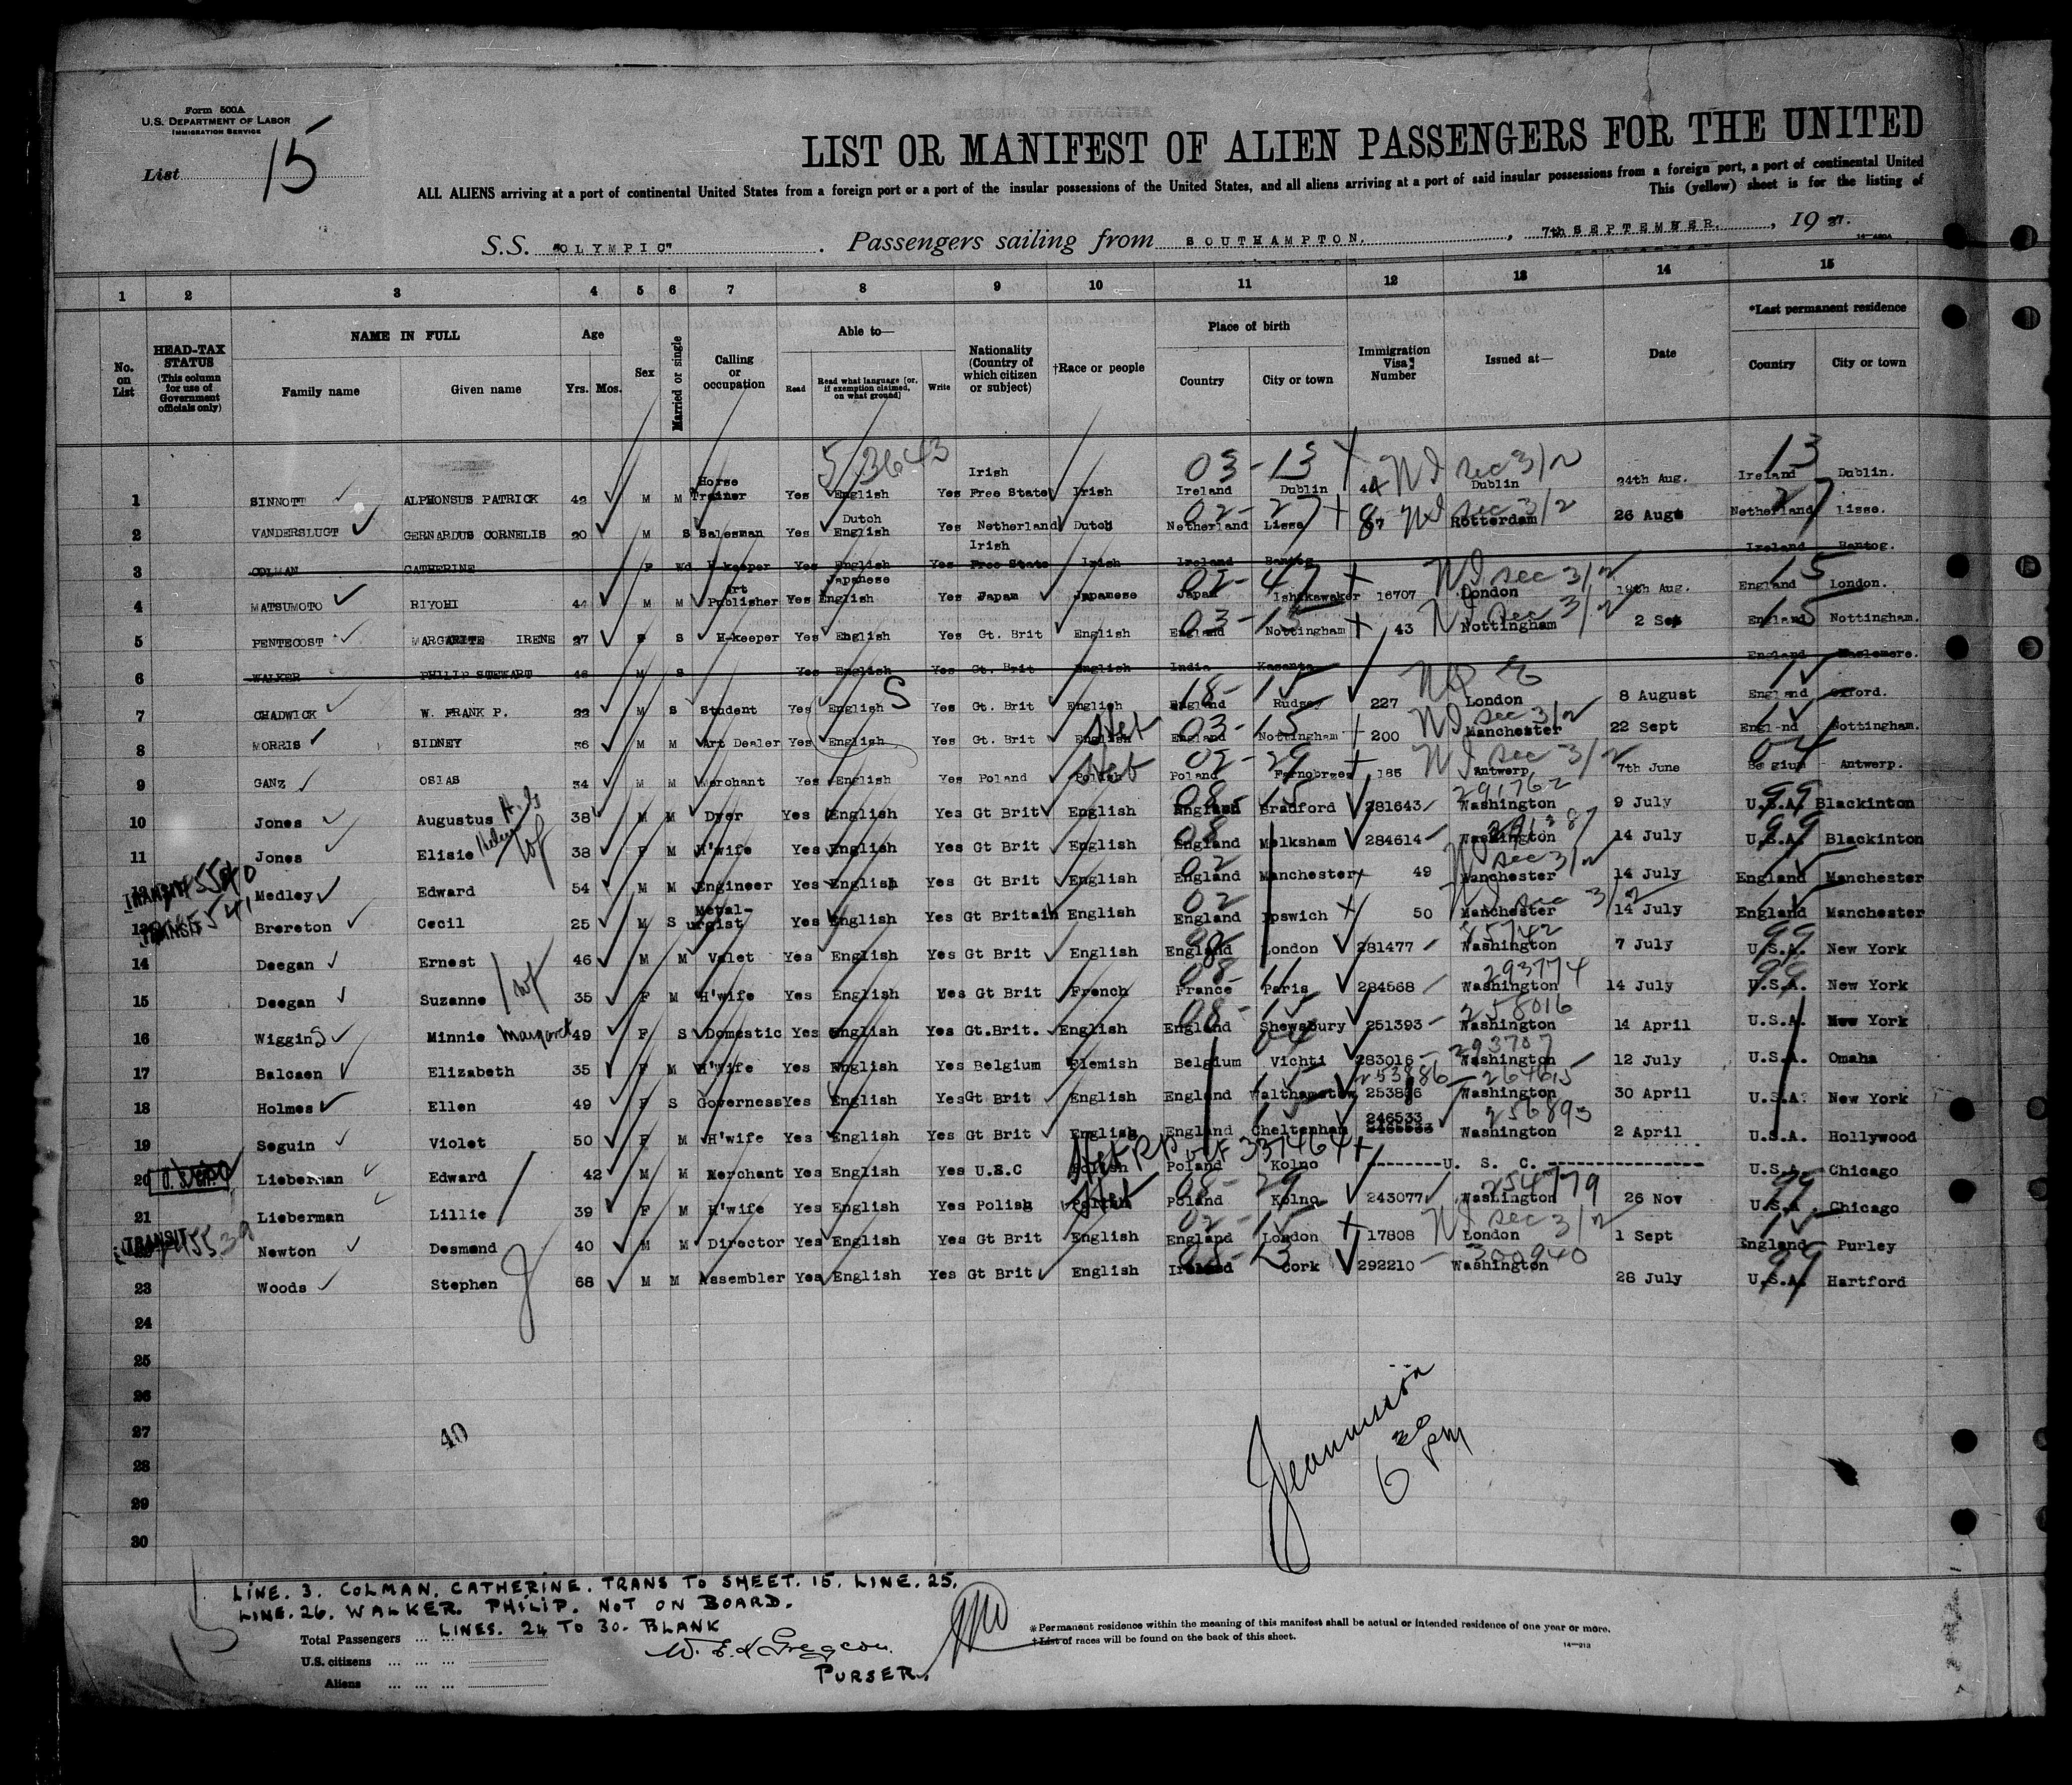 Form 500A
U.S. DEPARTMENT OF LABOR
IMMIGRATION SERVICE
List 15
LIST OR MANIFEST OF ALIEN PASSENGERS FOR THE UNITED
ALL ALIENS arriving at a port of continental United States from a foreign port or a port of the insular possessions of the United States, and all aliens arriving at a port of said insular possessions from a foreign port, a port of continental United
This (yellow) sheet is for the listing of
S.S. "OLYMPIC". Passengers sailing from SOUTHAMPTON, 7th SEPTEMBER, 1927.
1 2 3 4 5 6 7 8 9 10 11 12 13 14 15
No. on List
HEAD-TAX STATUS (This column for use of Government officials only)
NAME IN FULL Family name Given name
Age Yrs. Mos.
Sex
Married or single
Calling or occupation
Able to— Read Read what language [or, if exemption claimed, on what ground] Write
Nationality (Country of which citizen or subject)
†Race or people
Place of birth Country City or town
Immigration Visa Number
Issued at—
Date
*Last permanent residence Country City or town
53643
1 SINNOTT ALPHONSUS PATRICK 42 M M Horse Trainer Yes English Yes Irish Free State Irish Ireland Dublin 03-13 44 NI sec 3/2 Dublin 24th Aug. Ireland 13 Dublin.
2 VANDERSLUGT GERNARDUS CORNELIS 20 M S Salesman Yes Dutch English Yes Netherland Dutch Netherland Lisse 02-27 87 NI sec 3/2 Rotterdam 26 Aug Netherland 27 Lisse.
3 COLMAN CATHERINE F Wd H-keeper Yes English Yes Irish Free State Irish Ireland Bantog Ireland Bantog.
4 MATSUMOTO RIYOHI 44 M M Art Publisher Yes Japanese English Yes Japan Japanese Japan Ishikawaker 02-47 16707 NI sec 3/2 London 19th Aug. England 15 London.
5 PENTECOST MARGARITE IRENE 27 F S H-keeper Yes English Yes Gt. Brit English England Nottingham 03-15 43 NI sec 3/2 Nottingham 2 Sep England 15 Nottingham.
6 WALKER PHILIP STEWART 46 M S Yes English Yes Gt. Brit English India Kasante England Haslemere.
7 CHADWICK W. FRANK P. 22 M S Student Yes English S Yes Gt. Brit English England 18-15 227 London 8 August England Oxford.
8 MORRIS SIDNEY 36 M M Art Dealer Yes English Yes Gt. Brit English Heb England Nottingham 03-15 200 NI sec 3/2 Manchester 22 Sept England Nottingham.
9 GANZ OSIAS 34 M M Merchant Yes English Yes Poland Polish Heb Poland 02-29 185 NI sec 3/2 Antwerp 7th June Belgium 04 Antwerp.
10 Jones Augustus 38 M M Dyer Yes English Yes Gt Brit English England Bradford 08-15 281643 291762 Washington 9 July U.S.A. 99 Blackinton
11 Jones Elisie Helen wf 38 F M H'wife Yes English Yes Gt Brit English England Melksham 08 284614 Washington 14 July U.S.A. 99 Blackinton
12 TRANSIT Medley Edward 54 M M Engineer Yes English Yes Gt Brit English England Manchester 02 49 NI sec 3/2 Manchester 14 July England Manchester
13 TRANSIT Brereton Cecil 25 M S Metal-urgist Yes English Yes Gt Britain English England Ipswich 02 50 NI sec 3/2 Manchester 14 July England Manchester
14 Deegan Ernest 46 M M Valet Yes English Yes Gt Brit English England London 281477 Washington 7 July U.S.A. 99 New York
15 Deegan Suzanne wf 35 F M H'wife Yes English Yes Gt Brit French France Paris 08 284568 293774 Washington 14 July U.S.A. 99 New York
16 WigginS Minnie Margaret 49 F S Domestic Yes English Yes Gt.Brit. English England Shewsbury 08-15 251393 258016 Washington 14 April U.S.A. New York
17 Balcaen Elizabeth 35 F M H'wife Yes English Yes Belgium Flemish Belgium Vichti 04 283016 293707 Washington 12 July U.S.A. Omaha
18 Holmes Ellen 49 F S Governess Yes English Yes Gt Brit English England Walthamstow 253886 264615 Washington 30 April U.S.A. New York
19 Seguin Violet 50 F M H'wife Yes English Yes Gt Brit English England Cheltenham 246533 256893 Washington 2 April U.S.A. Hollywood
20 Lieberman Edward 42 M M Merchant Yes English Yes U.S.C Polish Heb Poland Kolno --------U. S. C.---------------- U.S.A. Chicago
21 Lieberman Lillie 39 F M H'wife Yes English Yes Polish Polish Heb Poland Kolno 08-29 243077 254779 Washington 26 Nov U.S.A. 99 Chicago
TRANSIT Newton Desmond 40 M M Director Yes English Yes Gt Brit English England London 02-15 17808 NI sec 3/2 London 1 Sept England Purley
23 Woods Stephen 68 M M Assembler Yes English Yes Gt Brit English Ireland Cork 08-13 292210 300940 Washington 28 July U.S.A. 99 Hartford
24
25
26
27
28
29
30
40
6 30 pm
LINE. 3. COLMAN. CATHERINE. TRANS TO SHEET. 15. LINE. 25.
LINE. 26. WALKER. PHILIP. NOT ON BOARD.
LINES. 24 TO 30. BLANK
Total Passengers
U.S. citizens
Aliens
PURSER.
*Permanent residence within the meaning of this manifest shall be actual or intended residence of one year or more.
†List of races will be found on the back of this sheet.
14—213